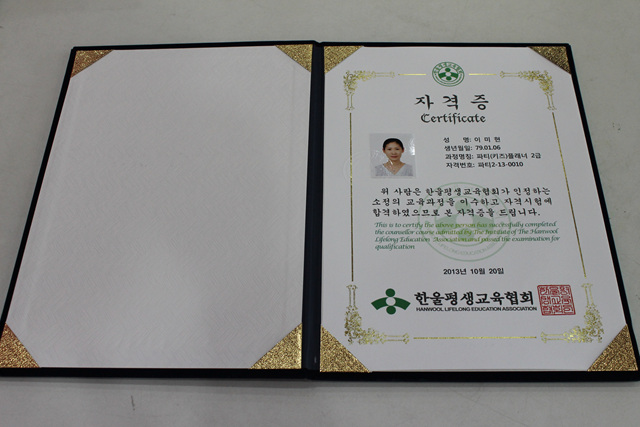 자격증
Certificate
성 명: 이미현
생년월일: 79.01.06
과정명칭: 파티(키즈)플래너 2급
자격번호: 파티2-13-0010
위 사람은 한울평생교육협회가 인정하는
소정의 교육과정을 이수하고 자격시험에
합격하였으므로 본 자격증을 드립니다.
This is to certify the above person has successfully completed
the counsellor course admitted by The Institute of The Hanwool
Lifelong Education Association and passed the examination for
qualification
2013년 10월 20일
한울평생교육협회
HANWOOL LIFELONG EDUCATION ASSOCIATION